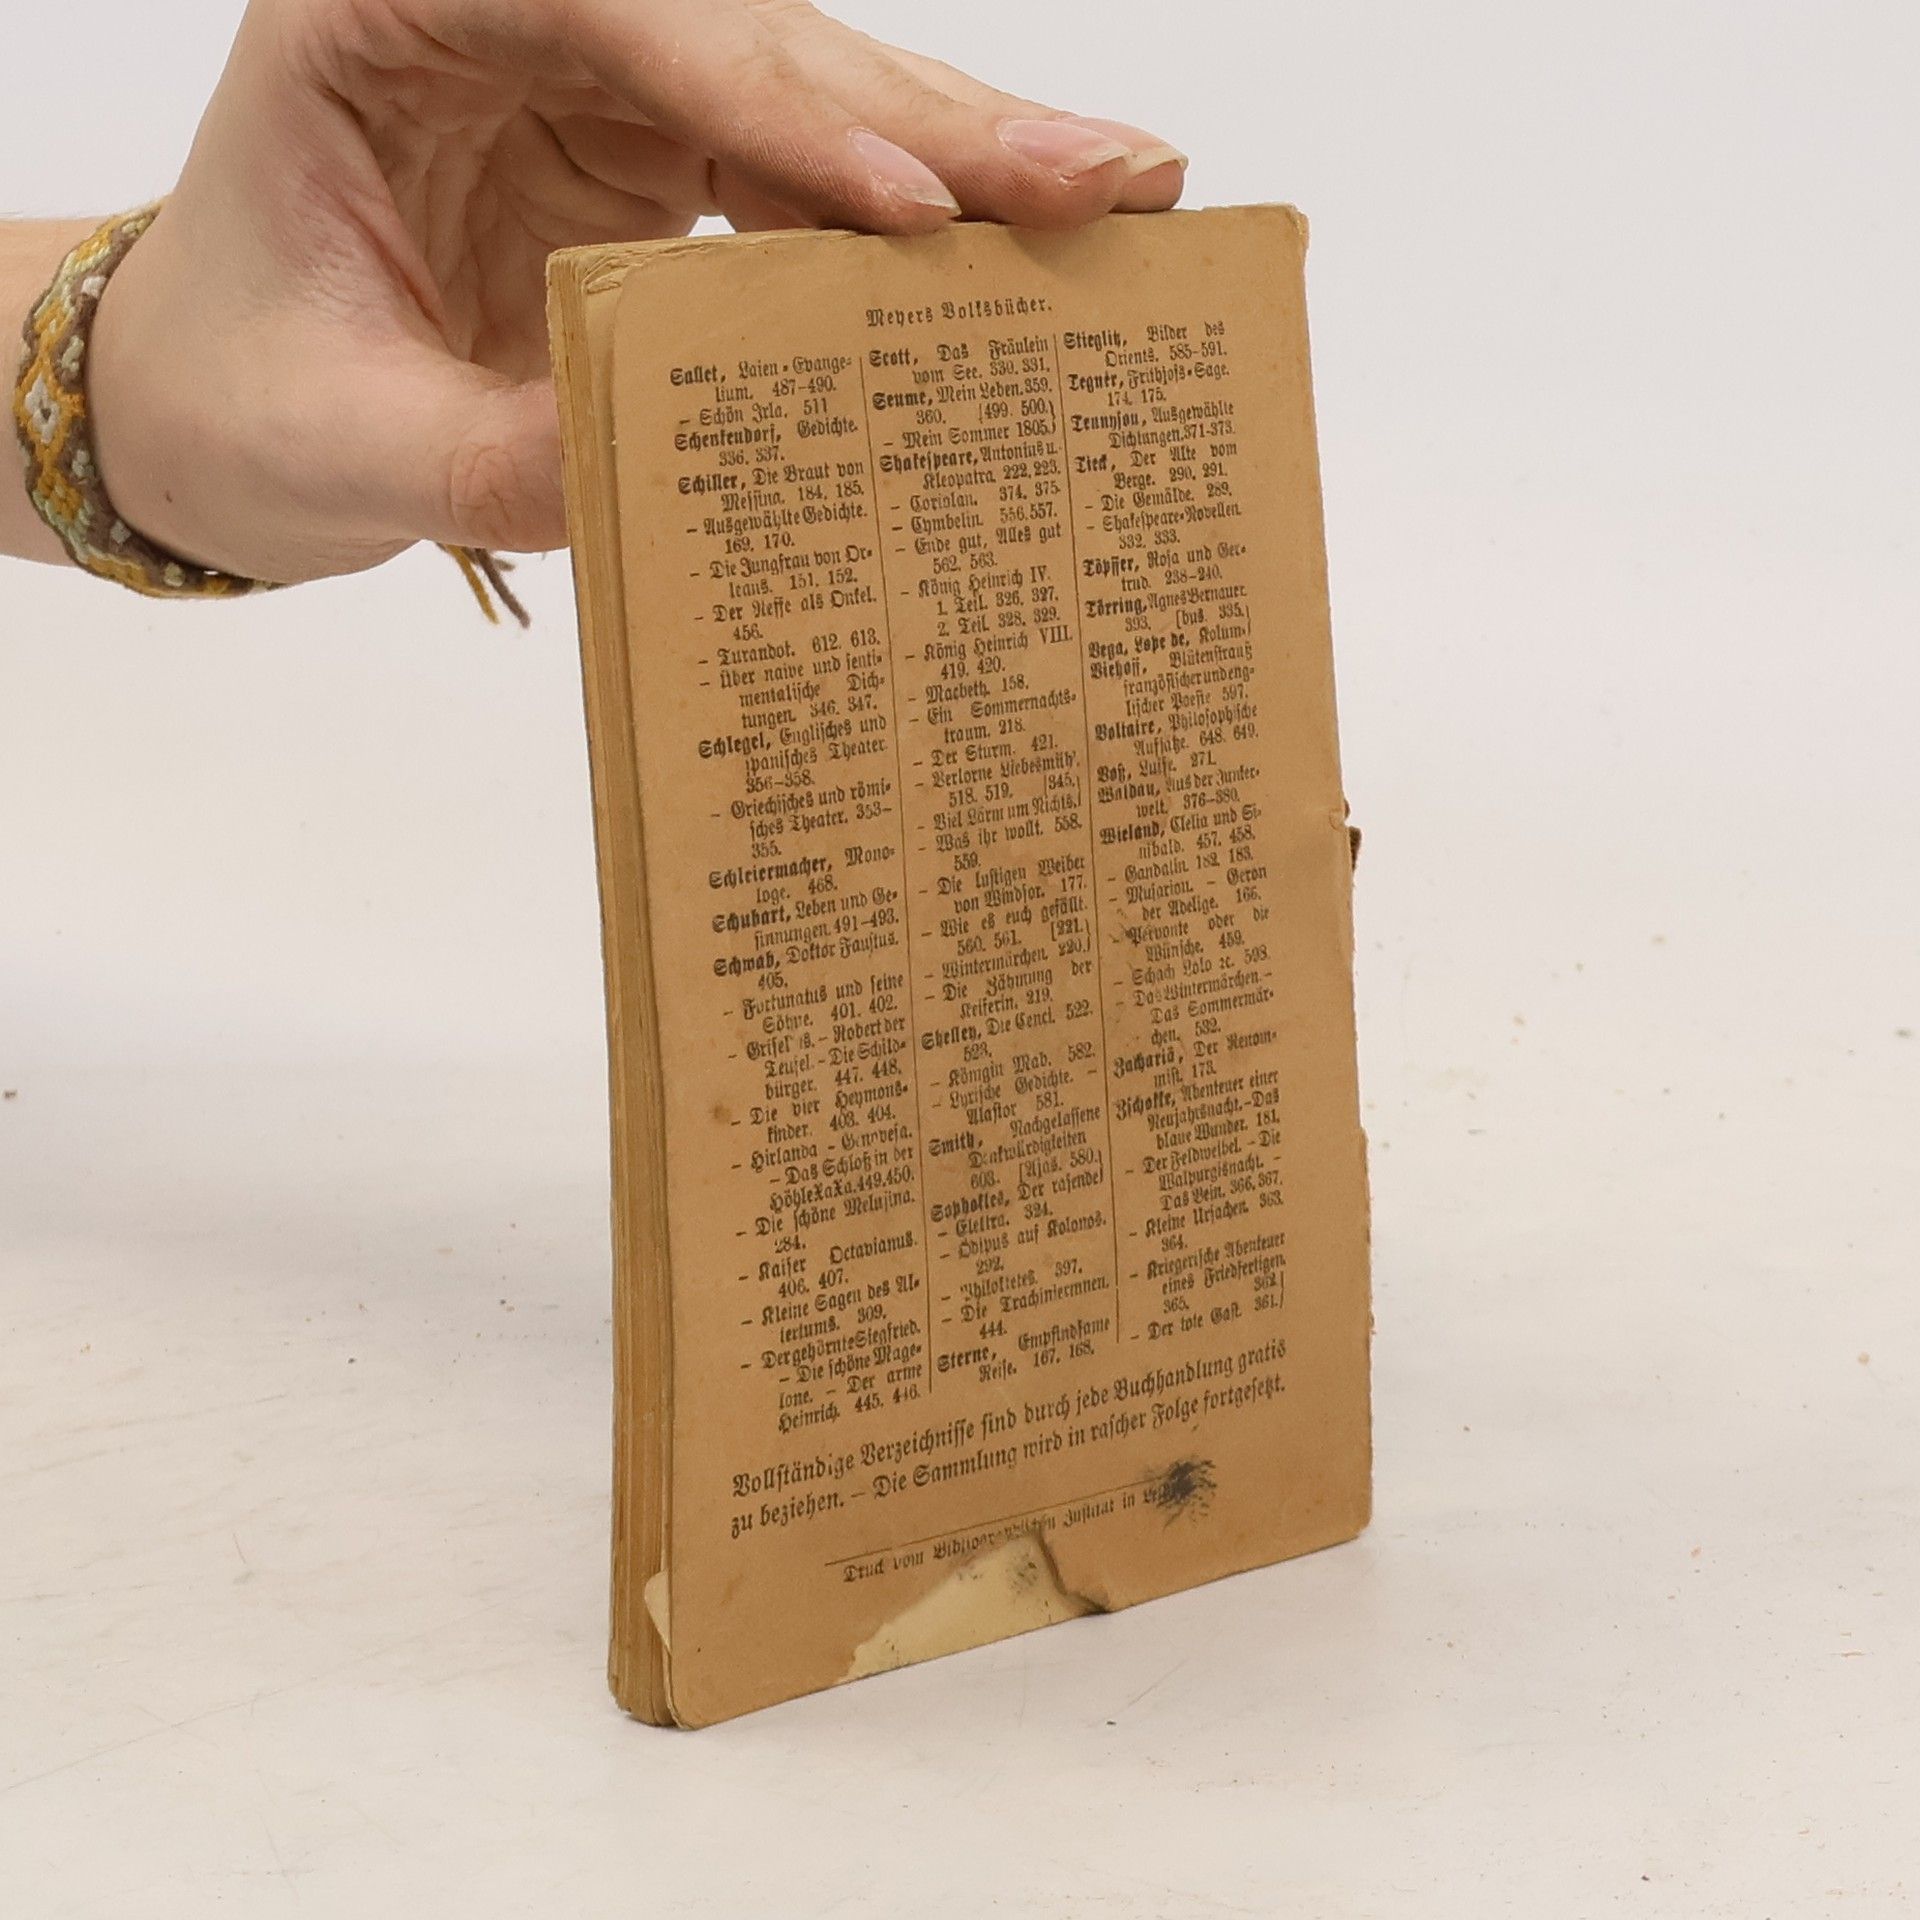 Meyers Volksbücher.
Sallet, Laien-Evange-
lium. 487-490.
– Schön Irla. 511
Schenkendorf, Gedichte.
336. 337.
Schiller, Die Braut von
Messina. 184. 185.
– Ausgewählte Gedichte.
169. 170.
– Die Jungfrau von Or-
leans. 151. 152.
– Der Neffe als Onkel.
456.
– Turandot. 612. 613.
– Über naive und senti-
mentalische Dich-
tungen. 346. 347.
Schlegel, Englisches und
spanisches Theater.
356-358.
– Griechisches und römi-
sches Theater. 353-
355.
Schleiermacher, Mono-
loge. 468.
Schubart, Leben und Ge-
sinnungen. 491-493.
Schwab, Doktor Faustus.
405.
– Fortunatus und seine
Söhne. 401. 402.
– Griseldis. – Robert der
Teufel. – Die Schild-
bürger. 447. 448.
– Die vier Heymons-
kinder. 403. 404.
– Hirlanda – Genovefa.
– Das Schloß in der
Höhle Xa Xa. 449. 450.
– Die schöne Melusina.
284.
– Kaiser Octavianus.
406. 407.
– Kleine Sagen des Al-
tertums. 309.
– Der gehörnte Siegfried.
– Die schöne Mage-
lone. – Der arme
Heinrich. 445. 446.
Scott, Das Fräulein
vom See. 330. 331.
Seume, Mein Leben. 359.
360. [499. 500.]
– Mein Sommer 1805.
Shakespeare, Antonius u.
Kleopatra. 222. 223.
– Coriolan. 374. 375.
– Cymbelin. 556. 557.
– Ende gut, Alles gut
562. 563.
– König Heinrich IV.
1. Teil. 326. 327.
2. Teil. 328. 329.
– König Heinrich VIII.
419. 420.
– Macbeth. 158.
– Ein Sommernachts-
traum. 218.
– Der Sturm. 421.
– Verlorne Liebesmüh'.
518. 519. [345.]
– Viel Lärm um Nichts.
– Was ihr wollt. 558.
559.
– Die lustigen Weiber
von Windsor. 177.
– Wie es euch gefällt.
560. 561. [221.]
– Wintermärchen. 220.
– Die Zähmung der
Keiferin. 219.
Shelley, Die Cenci. 522.
523.
– Königin Mab. 582.
– Lyrische Gedichte. –
Alastor 581.
Smith, Nachgelassene
Denkwürdigkeiten
603. [Ajas. 580.]
Sophokles, Der rasende
– Elektra. 324.
– Ödipus auf Kolonos.
292.
– Philoktetes. 397.
– Die Trachinierinnen.
444.
Sterne, Empfindsame
Reise. 167. 168.
Stieglitz, Bilder des
Orients. 585-591.
Tegnér, Frithjofs-Sage.
174. 175.
Tennyson, Ausgewählte
Dichtungen. 371-373.
Tieck, Der Alte vom
Berge. 290. 291.
– Die Gemälde. 289.
– Shakespeare-Novellen.
332. 333.
Töpffer, Rosa und Ger-
trud. 238-240.
Törring, Agnes Bernauer.
393. [bus. 335.]
Vega, Lope de, Kolum-
Viehoff, Blütenstrauß
französischer und eng-
lischer Poesie 597.
Voltaire, Philosophische
Aufsätze. 648. 649.
Voß, Luise. 271.
Waldau, Aus der Junker-
welt. 376-380.
Wieland, Clelia und Si-
nibald. 457. 458.
– Gandalin. 182. 183.
– Musarion. – Geron
der Adelige. 166.
– Pervonte oder die
Wünsche. 459.
– Schach Lolo ꝛc. 598.
– Das Wintermärchen. –
Das Sommermär-
chen. 532.
Zachariä, Der Renom-
mist. 173.
Zschokke, Abenteuer einer
Neujahrsnacht. – Das
blaue Wunder. 181.
– Der Feldweibel. – Die
Walpurgisnacht. –
Das Bein. 366. 367.
– Kleine Ursachen. 363.
364.
– Kriegerische Abenteuer
eines Friedfertigen.
365. 362.
– Der tote Gast. 361.
Vollständige Verzeichnisse sind durch jede Buchhandlung gratis
zu beziehen. – Die Sammlung wird in rascher Folge fortgesetzt.
Druck vom Bibliographischen Institut in